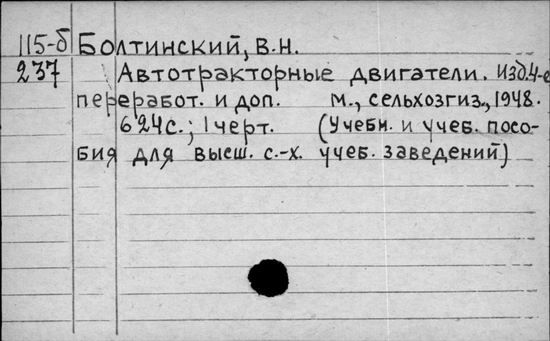 115-б Болтинский, В.Н.
237 Автотракторные двигатели. Изд. 4-е
переработ. и доп. М., Сельхозгиз, 1948.
624с.; 1 черт. (Учебн. и учеб. посо-
бия для высш. с.-х. учеб. заведений)